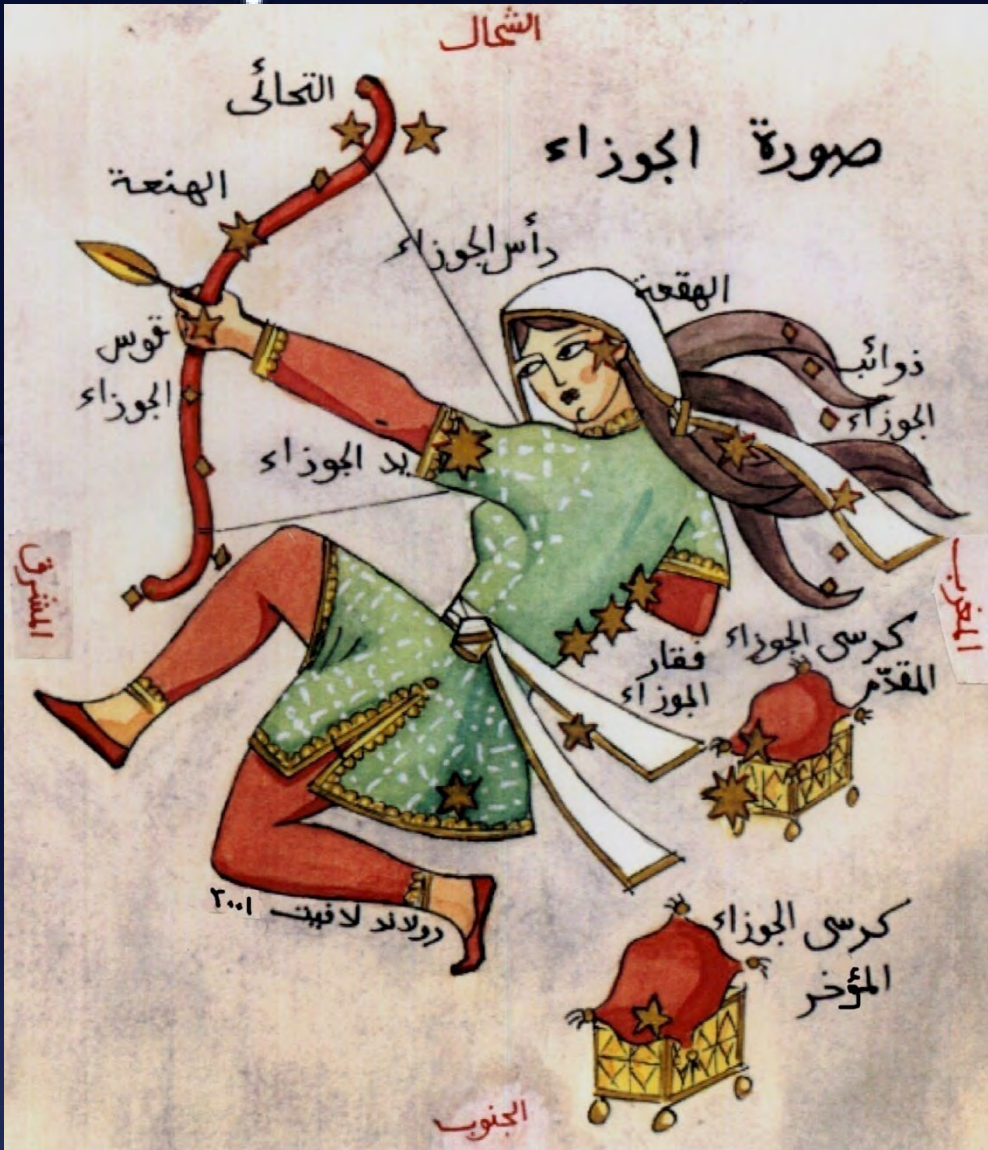 الشمال
صورة الجوزاء
التحائى
الهنعة
رأس الجوزاء
الهقعة
ذوائب
الجوزاء
قوس
الجوزاء
يد الجوزاء
المشرق
المغرب
فقار
الجوزاء
كرسى الجوزاء
المقدّم
رولاند لافيت ٢٠٠١
كرسى الجوزاء
المؤخر
الجنوب